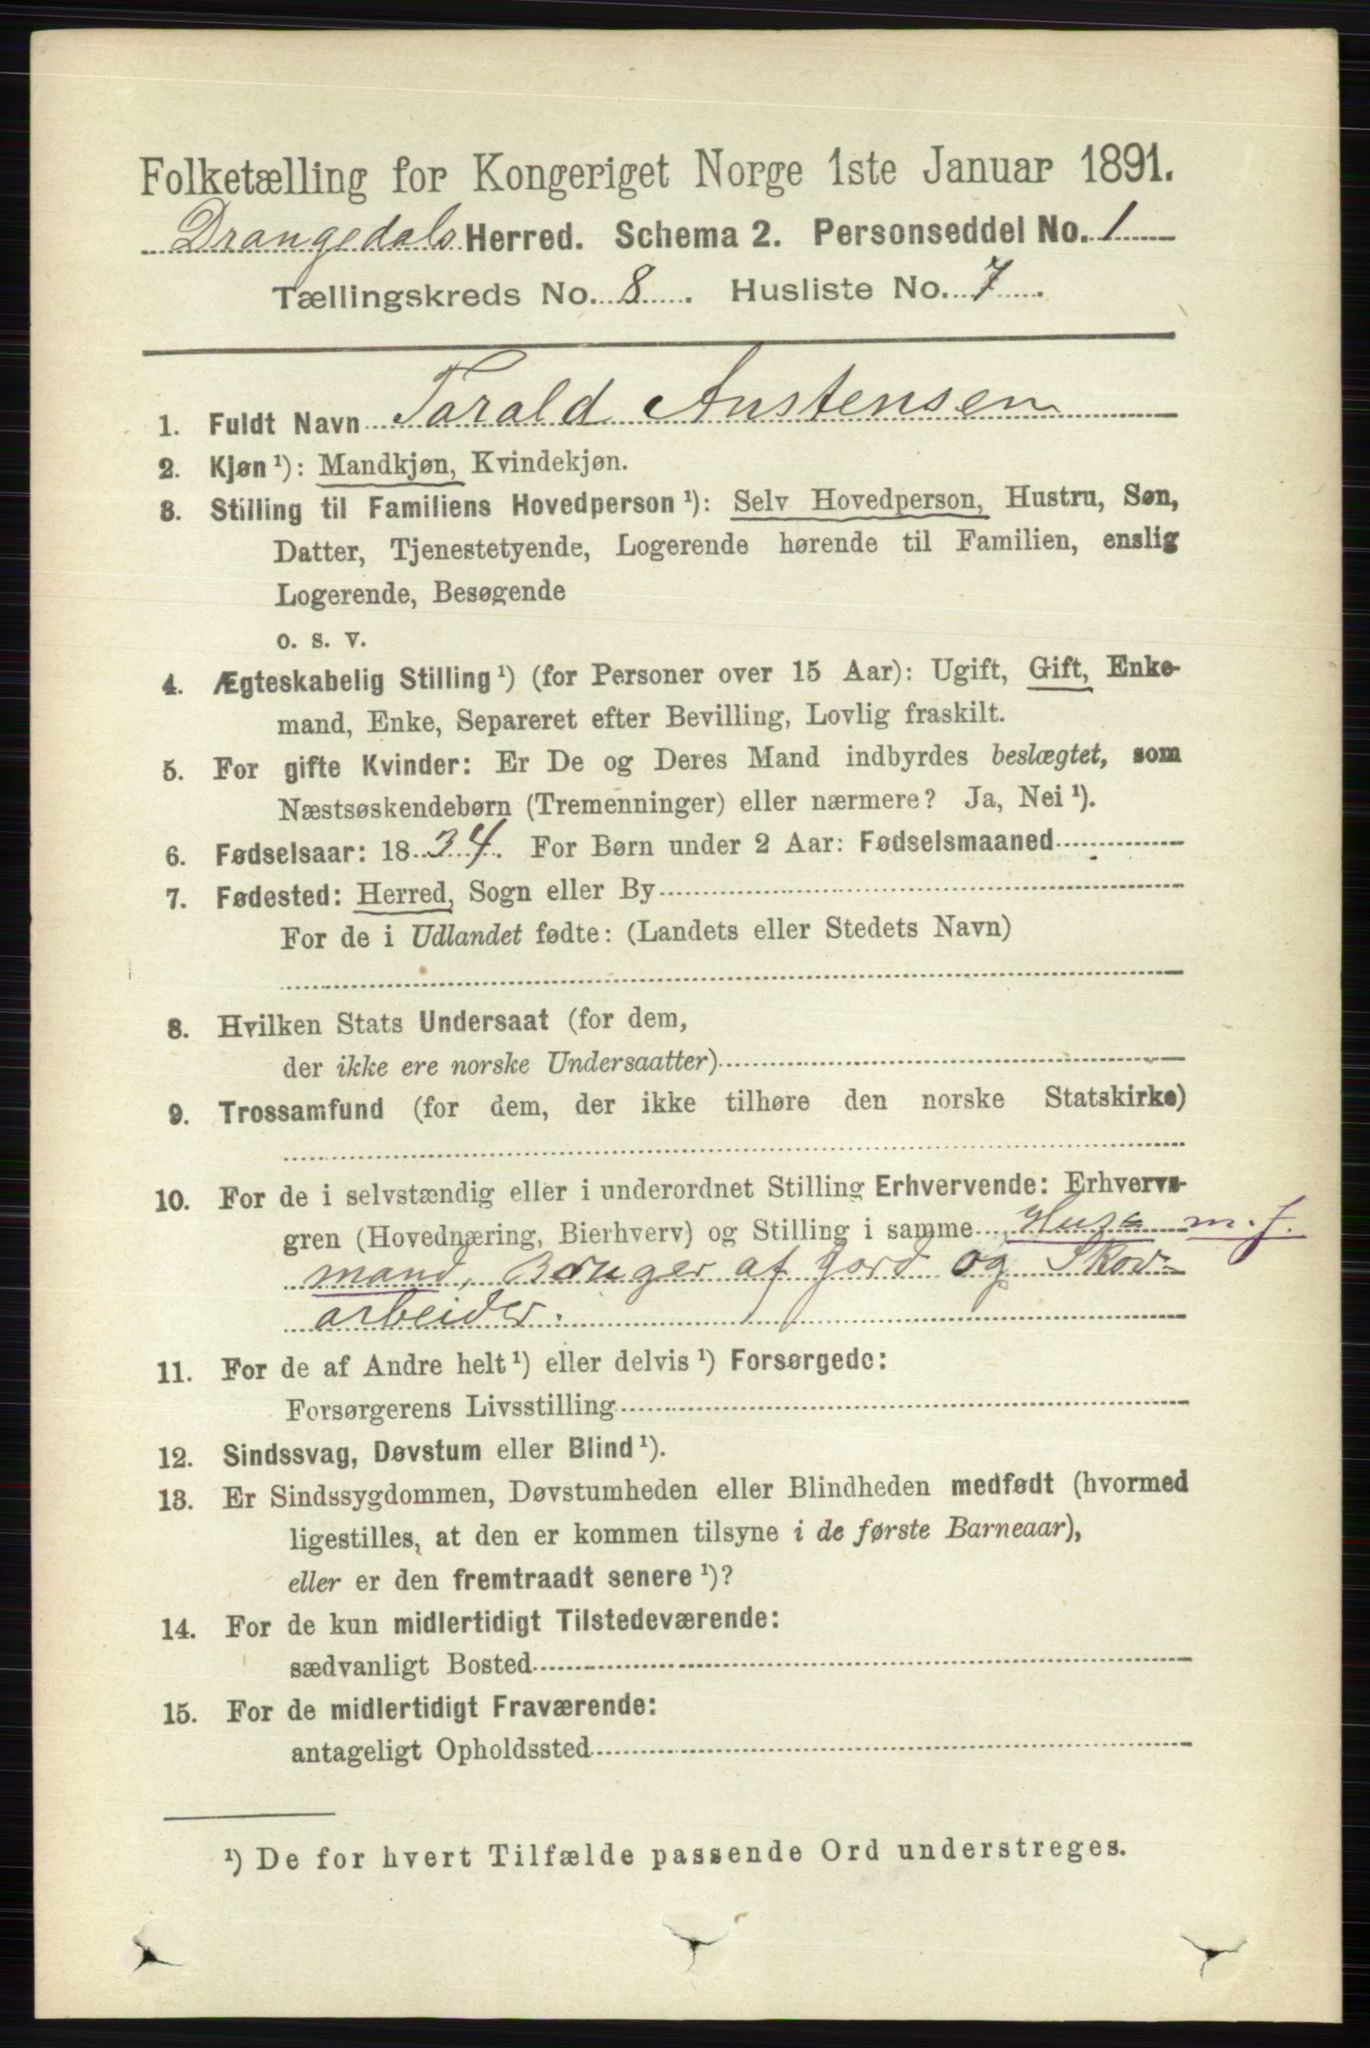 Folketælling for Kongeriget Norge 1ste Januar 1891.
Drangedals Herred. Schema 2. Personseddel No. 1
Tællingskreds No. 8. Husliste No. 7.
1. Fuldt Navn Tarald Austensen
2. Kjøn ¹): Mandkjøn, Kvindekjøn.
3. Stilling til Familiens Hovedperson ¹): Selv Hovedperson, Hustru, Søn,
Datter, Tjenestetyende, Logerende hørende til Familien, enslig
Logerende, Besøgende
o. s. v.
4. Ægteskabelig Stilling ¹) (for Personer over 15 Aar): Ugift, Gift, Enke-
mand, Enke, Separeret efter Bevilling, Lovlig fraskilt.
5. For gifte Kvinder: Er De og Deres Mand indbyrdes beslægtet, som
Næstsøskendebørn (Tremenninger) eller nærmere? Ja, Nei ¹).
6. Fødselsaar: 1834. For Børn under 2 Aar: Fødselsmaaned
7. Fødested: Herred, Sogn eller By
For de i Udlandet fødte: (Landets eller Stedets Navn)
8. Hvilken Stats Undersaat (for dem,
der ikke ere norske Undersaatter)
9. Trossamfund (for dem, der ikke tilhøre den norske Statskirke)
10. For de i selvstændig eller i underordnet Stilling Erhvervende: Erhvervs-
gren (Hovednæring, Bierhverv) og Stilling i samme Hus= m. j.
mand, Bruger af Jord og Skov-
arbeider.
11. For de af Andre helt ¹) eller delvis ¹) Forsørgede:
Forsørgerens Livsstilling
12. Sindssvag, Døvstum eller Blind ¹).
13. Er Sindssygdommen, Døvstumheden eller Blindheden medfødt (hvormed
ligestilles, at den er kommen tilsyne i de første Barneaar),
eller er den fremtraadt senere ¹)?
14. For de kun midlertidigt Tilstedeværende:
sædvanligt Bosted
15. For de midlertidigt Fraværende:
antageligt Opholdssted
¹) De for hvert Tilfælde passende Ord understreges.